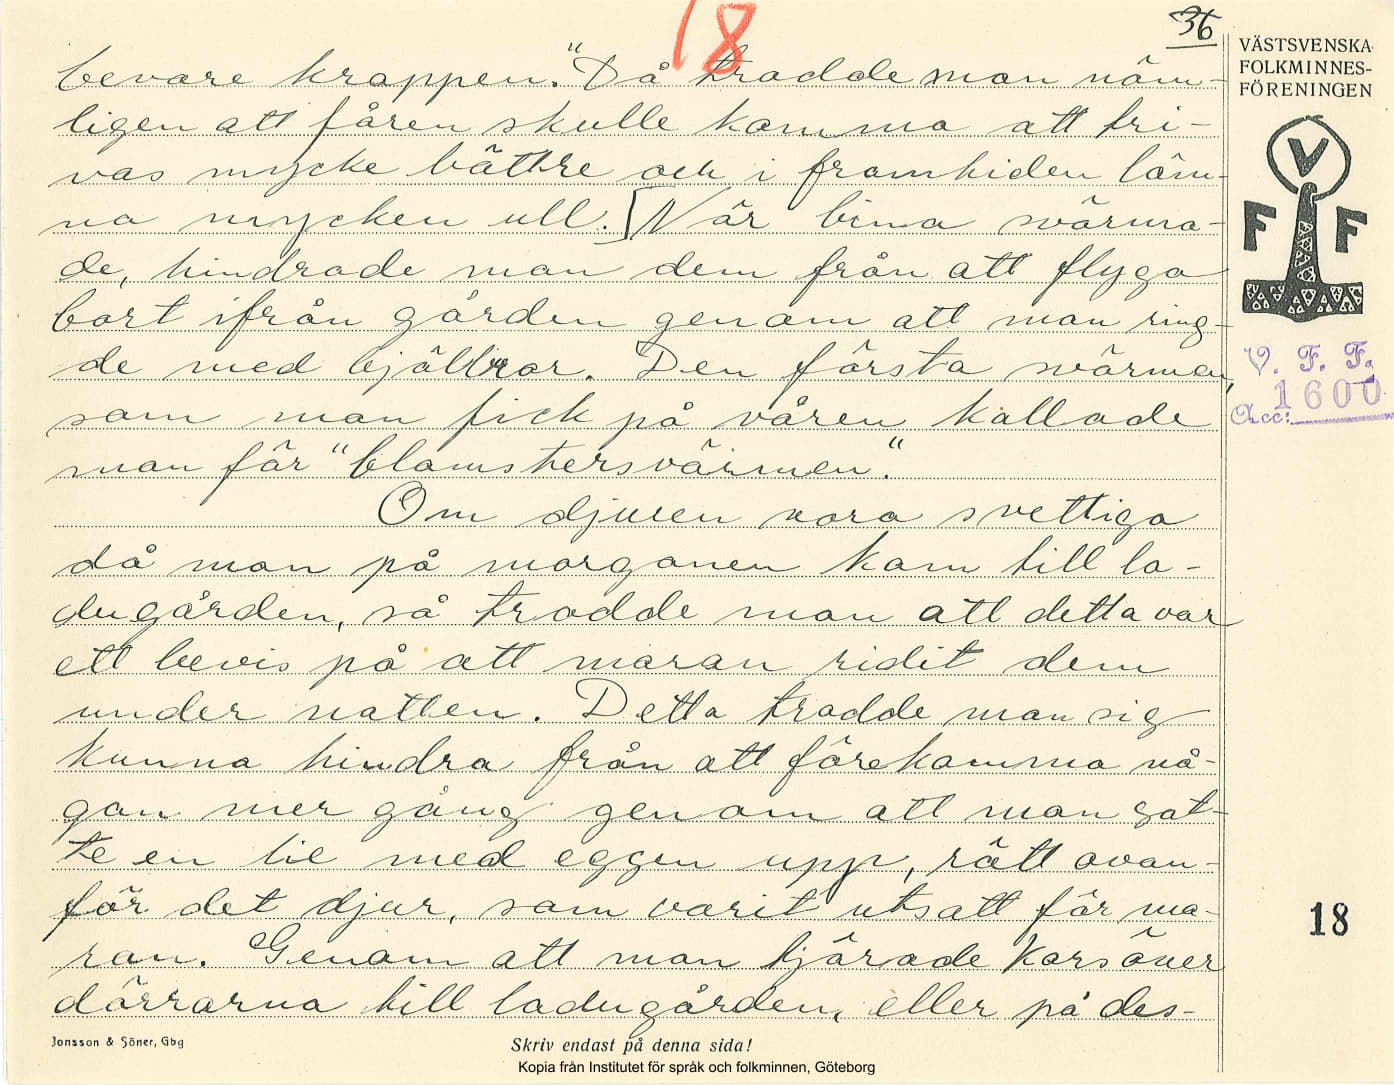 18
36
VÄSTSVENSKA
FOLKMINNES-
FÖRENINGEN
bevare kroppen." Då trodde man näm-
ligen att fåren skulle komma att tri-
vas mycke bättre och i framtiden läm-
na mycken ull. [När bina svärma-
de, hindrade man dem från att flyga
bort ifrån gården genom att man ring-
de med bjällror. Den första svärmen,
som man fick på våren kallade
man för "blomstersvärmen".
Om djuren voro svettiga
då man på morgonen kom till la-
dugården, så trodde man att detta var
ett bevis på att maran ridit dem
under natten. Detta trodde man sig
kunna hindra från att förekomma nå-
gon mer gång genom att man sat-
te en lie med eggen upp, rätt ovan-
för det djur, som varit utsatt för ma-
ran. Genom att man tjärade kors över
dörrarna till ladugården, eller på des-
V
F F
V. F. F.
Acc: 1600
18
Jonsson & Söner, Gbg
Skriv endast på denna sida!
Kopia från Institutet för språk och folkminnen, Göteborg